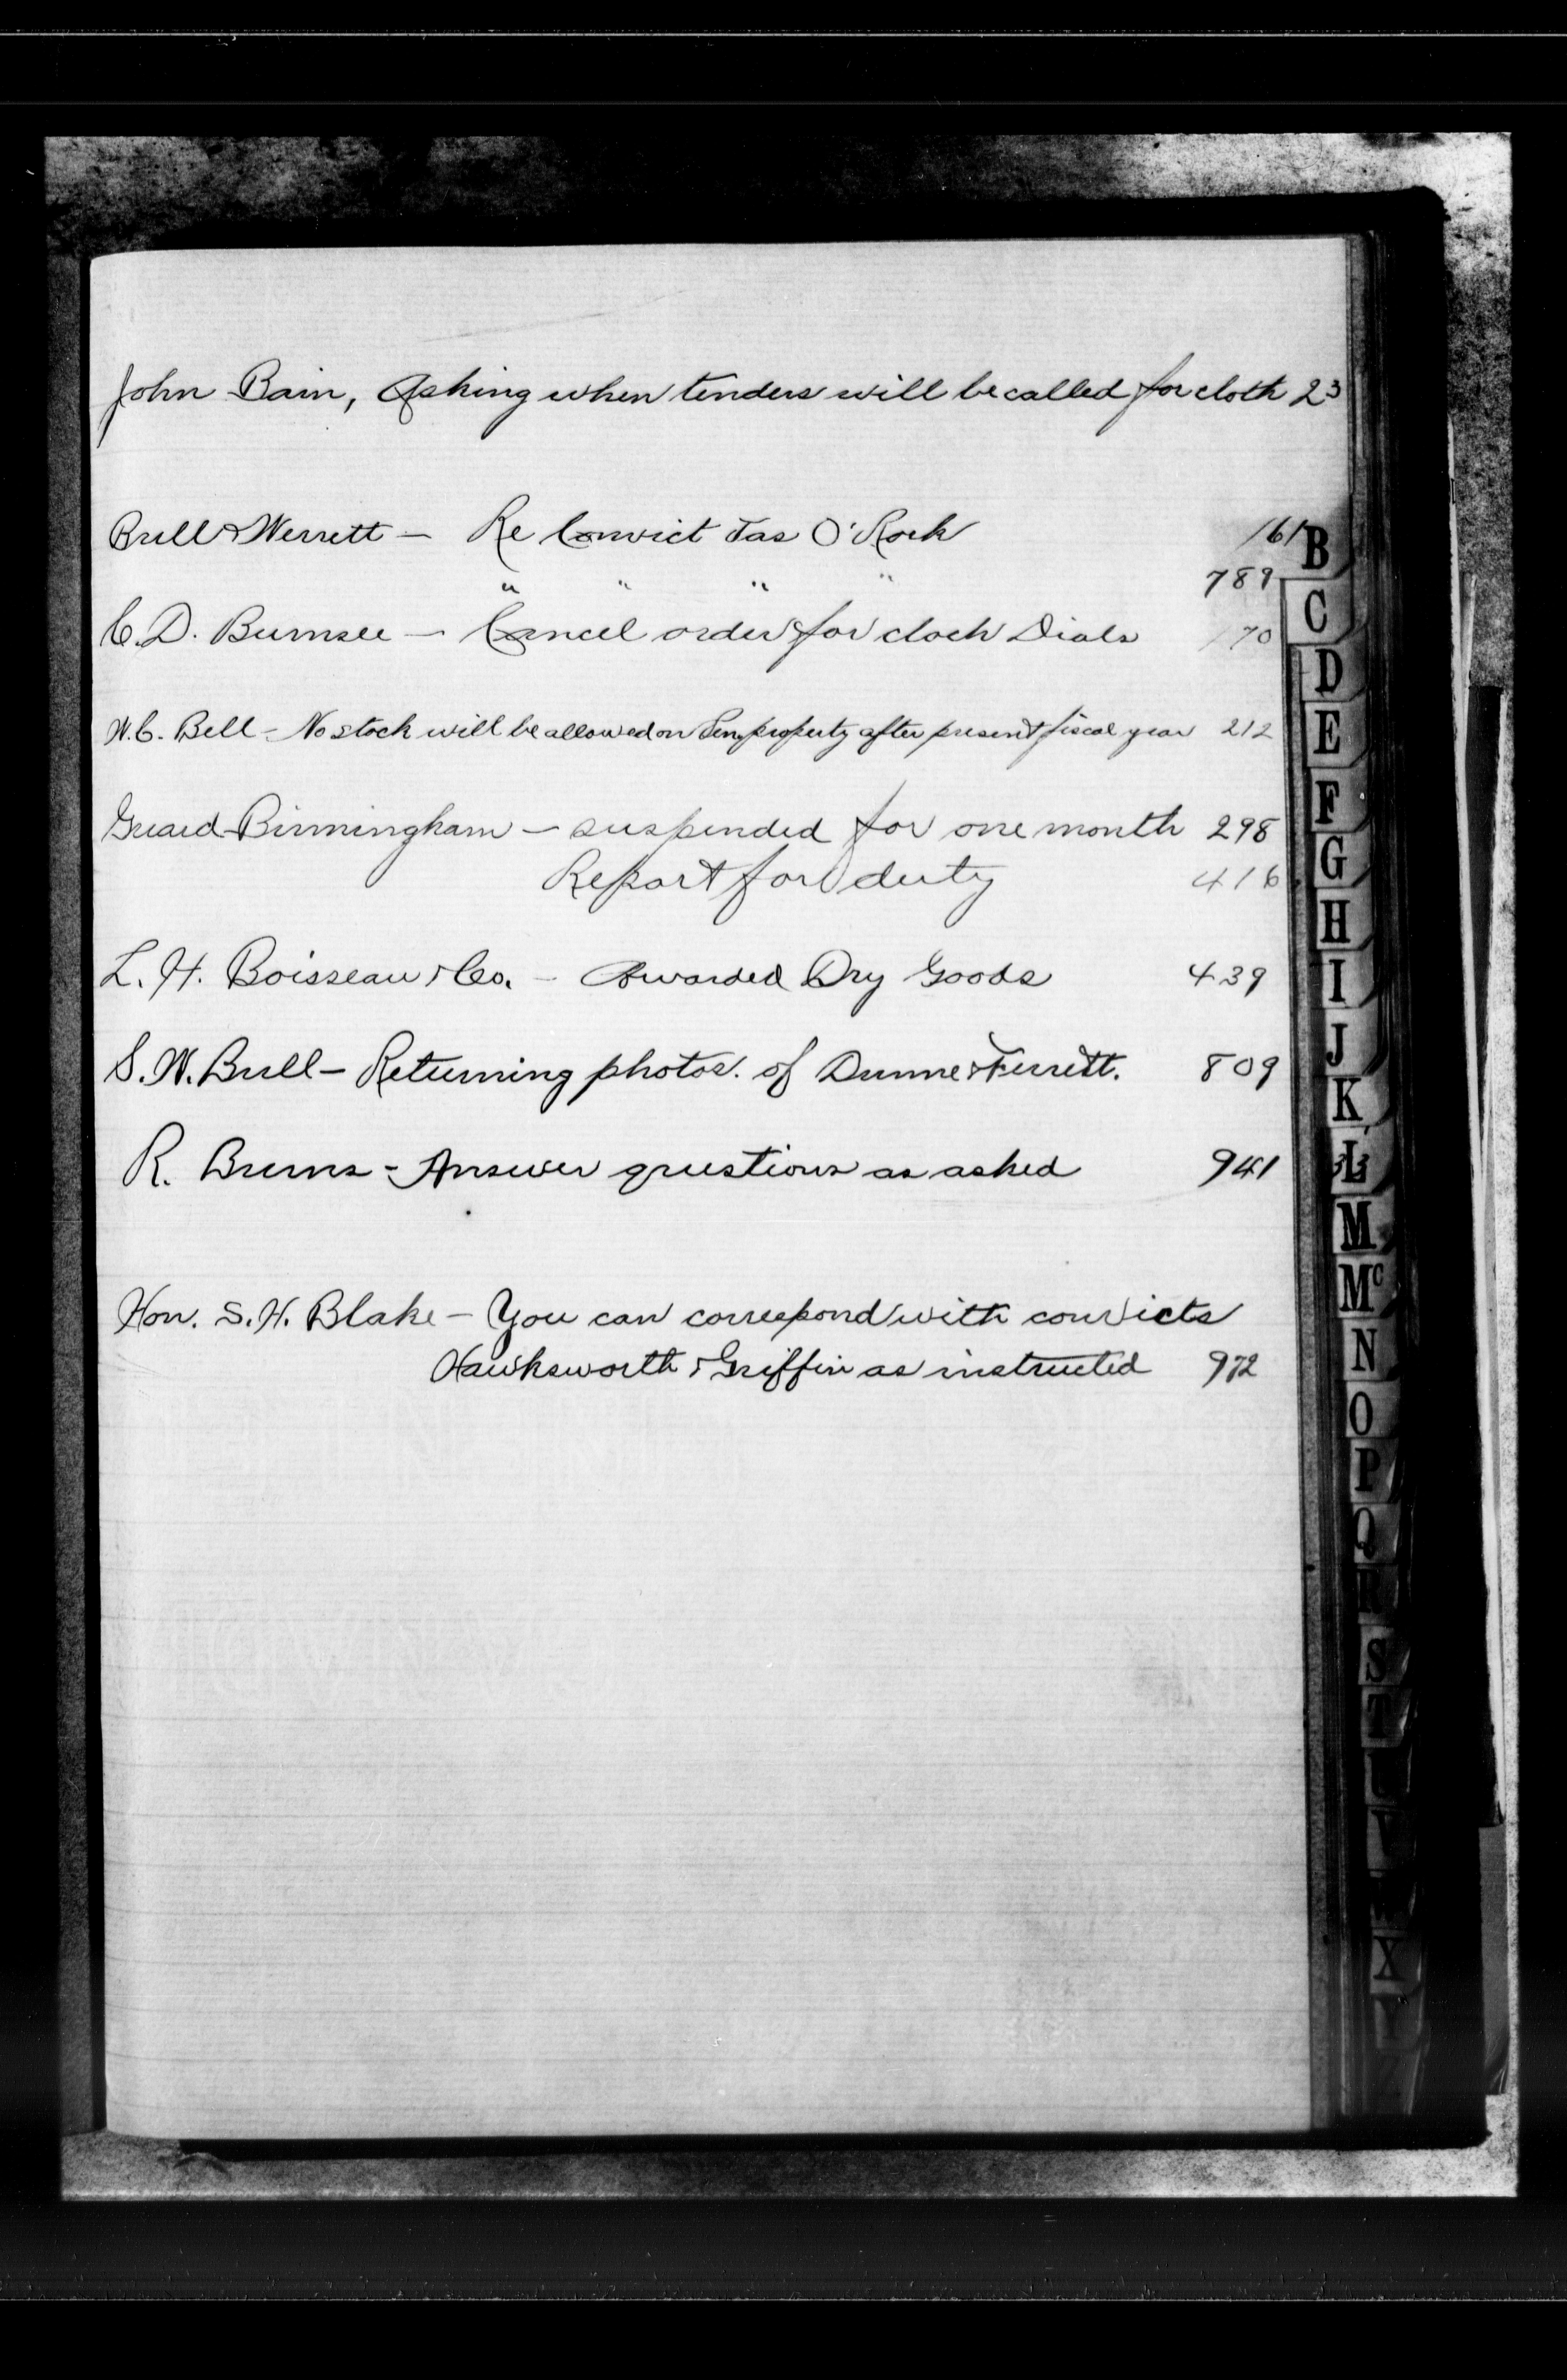 John Bain, Asking when tenders will be called for cloth 23
Bull & Werrett — Re Convict Jas O'Rork 161
" " " " 789
C. D. Burnsee — Cancel order for clock Dials 170
W. C. Bell - No stock will be allowed on Pen. property after present fiscal year 212
Guard Birmingham — suspended for one month 298
Report for duty 416
L. H. Boisseau & Co. - Awarded Dry Goods 439
S. W. Bull — Returning photos. of Dunne & Ferrett. 809
R. Burns - Answer questions as asked 941
Hon. S. H. Blake — You can correspond with convicts
Hawksworth & Griffin as instructed 972
B
C
D
E
F
G
H
I
J
K
L
M
Mc
N
O
P
Q
R
S
T
V
X